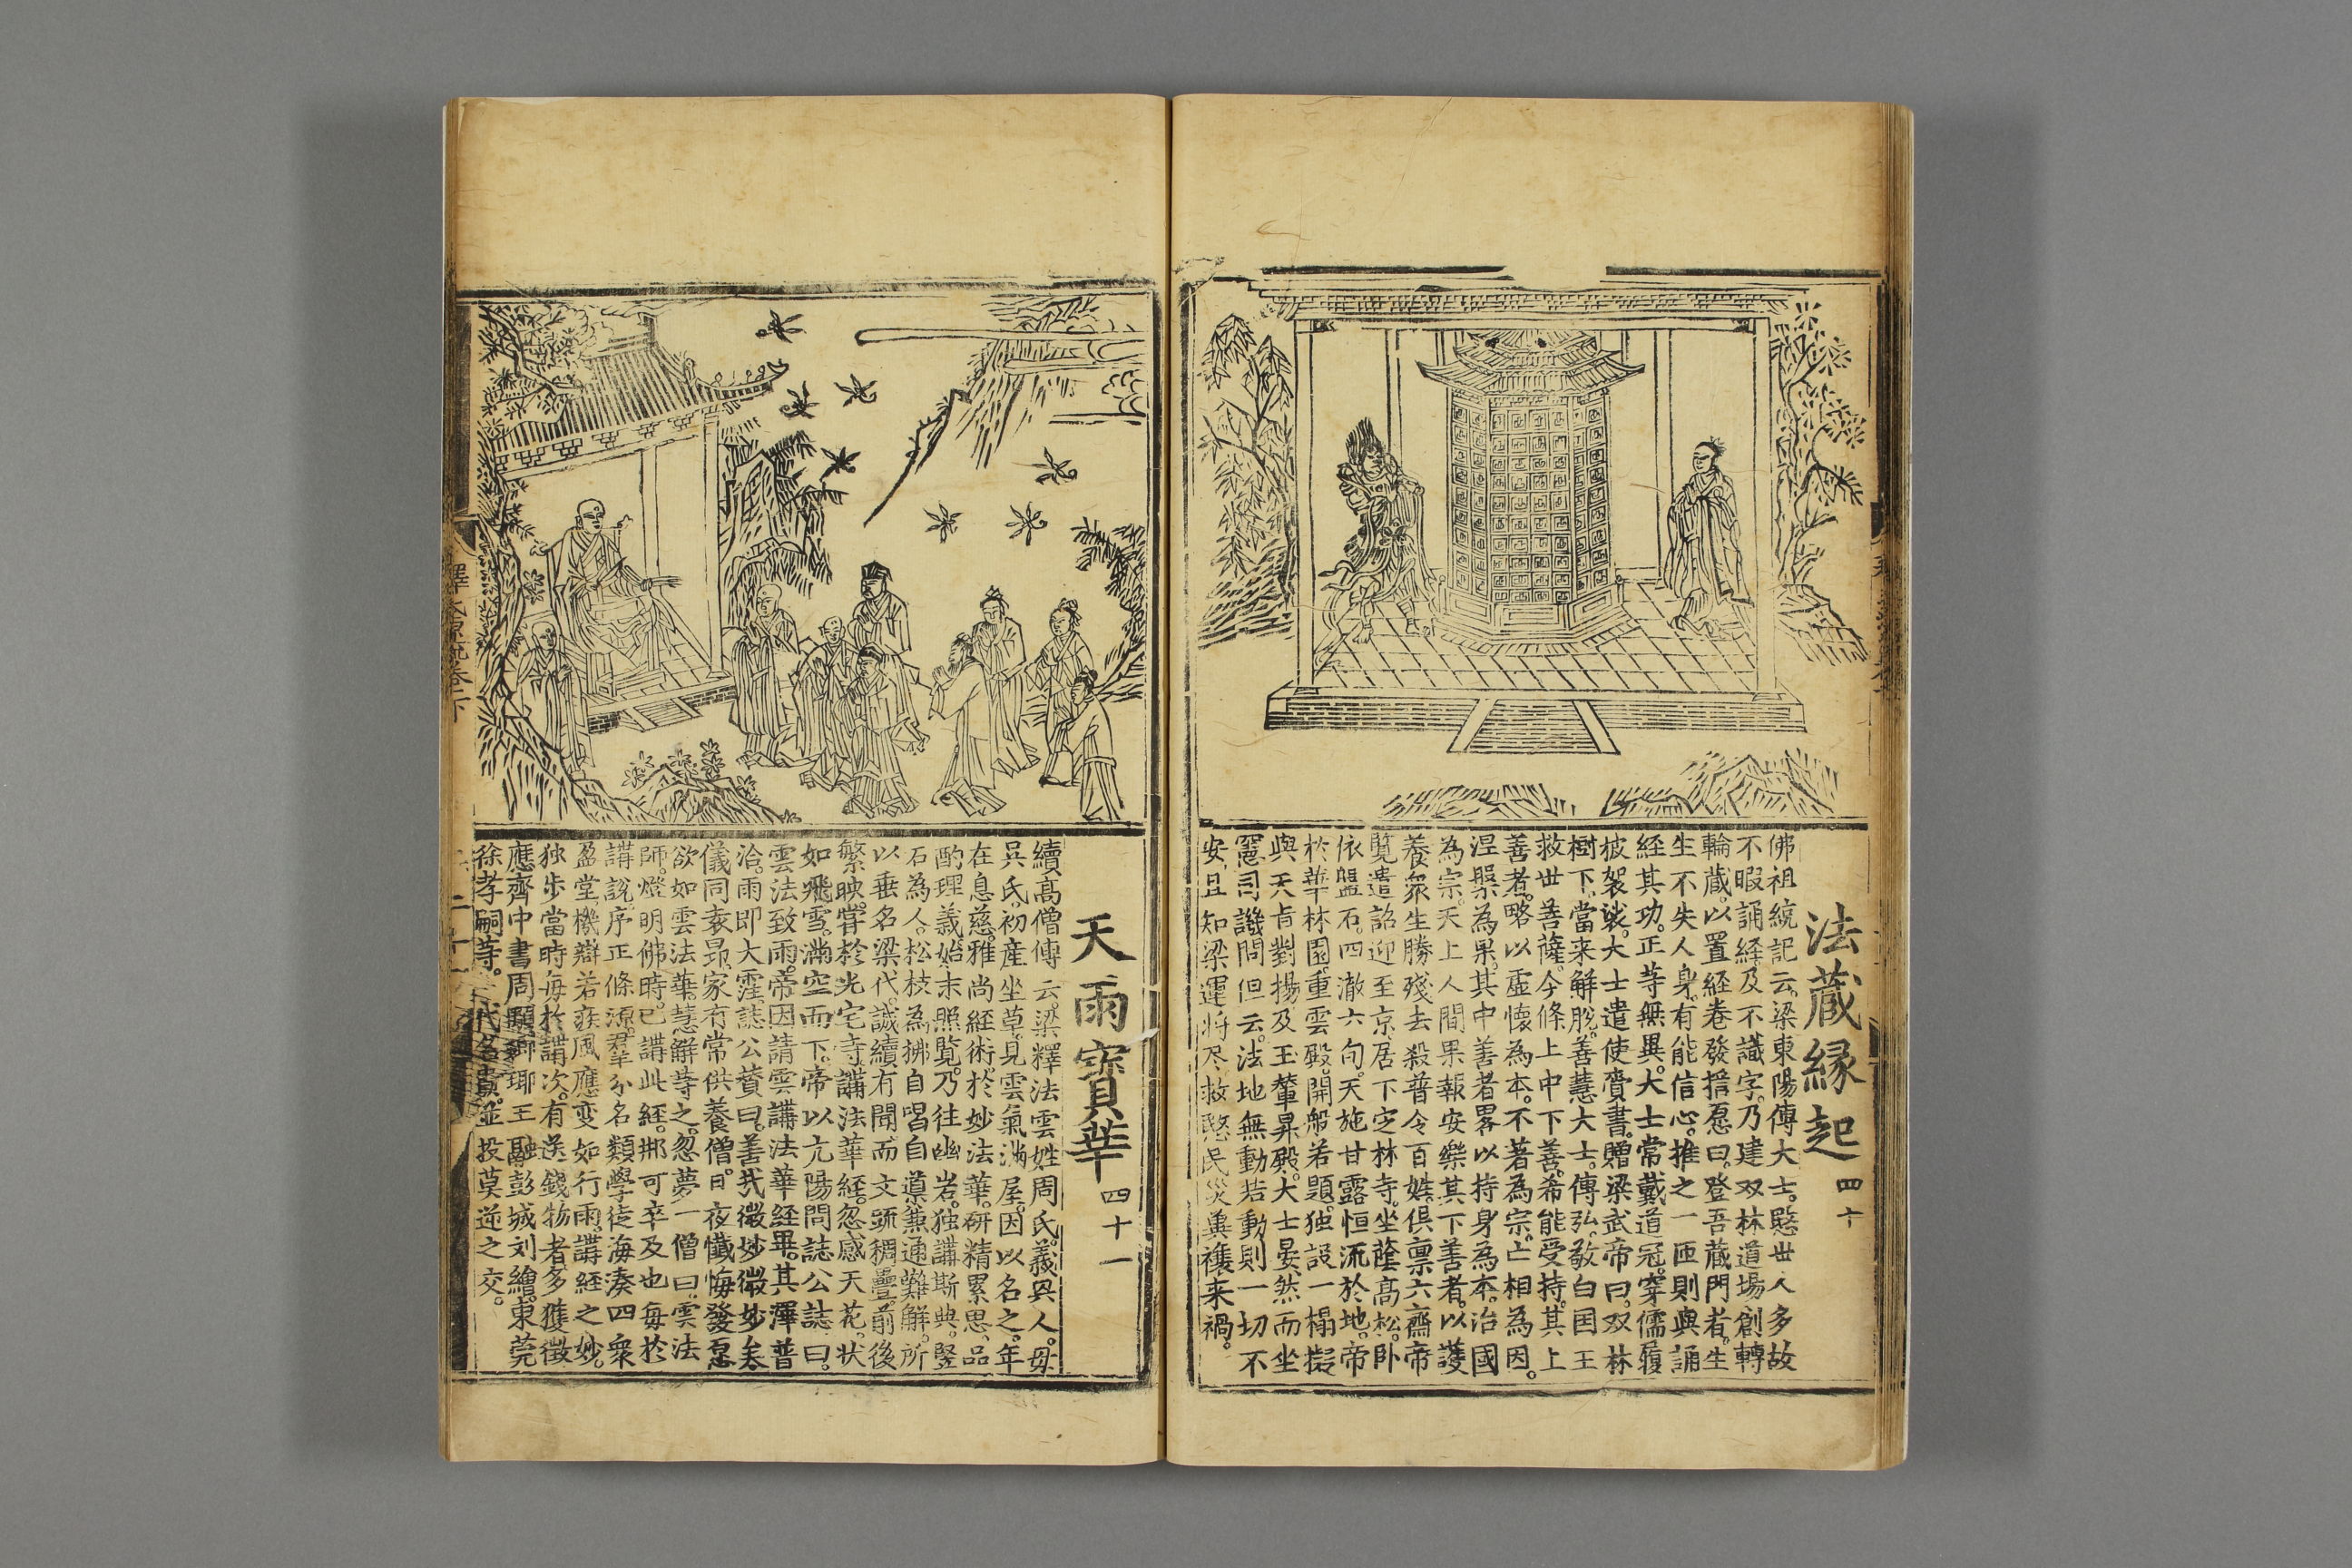 法蔵縁起 四十
佛祖統記云。梁東陽傳大士。愍世人多故
不暇誦經。及不識字。乃建双林道場創轉
輪蔵。以置経卷發㨪惌曰。登吾蔵門者。生
生不失人身。有能信心。推之一匝則與誦
経其功。正等無異。大士常戴道冠。穿儒履
披袈裟。大士遣使賫書。贈梁武帝曰。双林
樹下。當来解脫。善慧大士。傳弘。敬白囯王
救世菩薩。今條上中下善。希能受持。其上
善者。略以虛懷為本。不著為宗。亡相為因。
涅槃為果。其中善者畧以持身為本。治國
為宗。天上人間果報安樂其下善者。以護
養衆生勝殘去殺普令百姓。俱禀六齋帝
覽遣詔迎至京。居下㝎林寺。坐蔭高松。卧
依盤石。四澈六旬。天施甘露恒流於地。帝
於華林園。重雲殿。開般若題。独設一榻擬
與天旨對揚及玉輦昇殿。大士晏然而坐
憲司譏問但云。法地無動若動則一切不
安。且知梁運将尽救愍民災兾禳来禍。
天雨寳華 四十一
續高僧傳云。梁釋法雲姓周氏。義興人。毋
吳氏。初産坐草。見雲氣满屋。因以名之。年
在息慈。雅尚経術。於妙法華。研精累思。品
酌理義。始末照覽。乃往幽岩。独講斯典。竪
石為人。松枝為拂自唱自導。兼通難解。所
以垂名梁代。誠續有聞。而文䟽稠疊。前後
繁映。甞於光宅寺講法華經。忽感天花。状
如飛雪。满空而下。帝以亢陽問誌公誌曰。
雲法致雨。帝因請雲講法華経畢。其澤普
洽。雨即大霔。誌公賛曰。善哉微妙微妙矣
儀同袁昂。家有常供養僧。日夜懺悔發惌
欲如雲法華。慧解等之。忽夢一僧曰。雲法
師。燈明佛時。已講此経。那可卒及也毎於
講說。序正條源。羣分名類學徒海湊四衆
盈堂機辯若疾風應变如行雨。講経之妙。
独步當時毎於講次。有送錢物者多獲徵
應齊中書周顒琊瑘王融彭城刘繪。東莞
徐孝嗣等。一代名貴。並投莫逆之交。